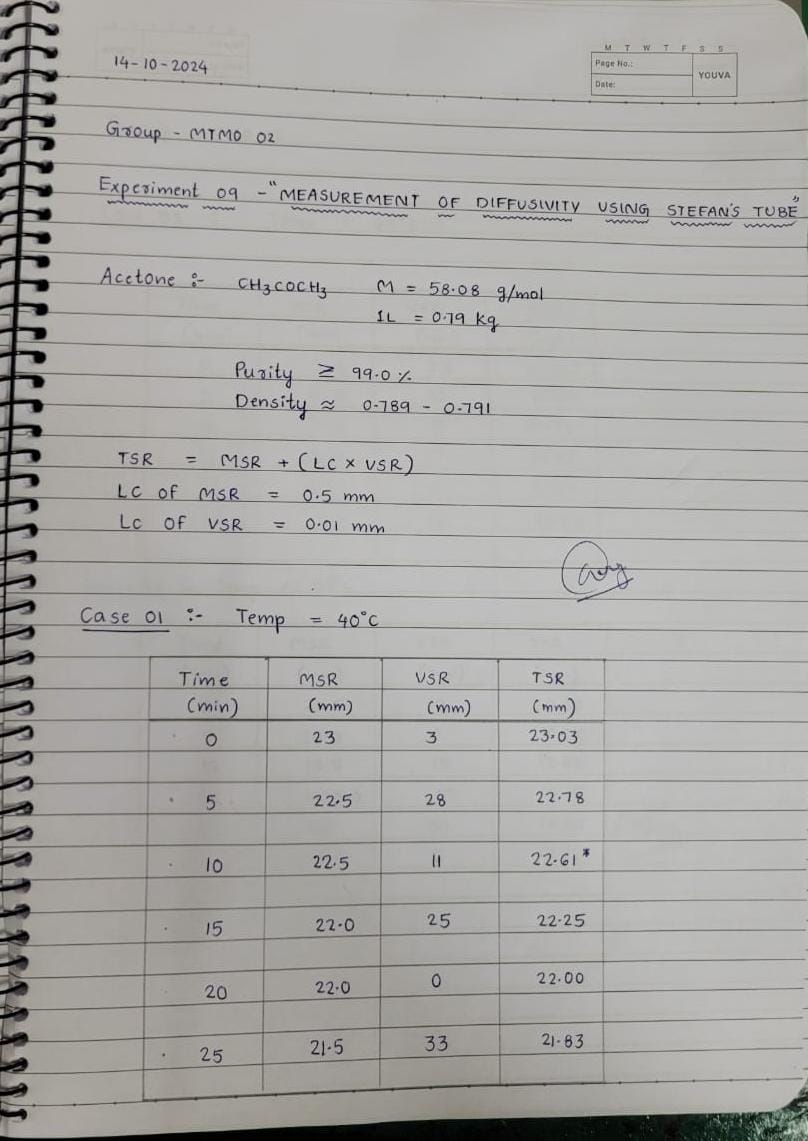 M T W T F S S
Page No.:
YOUVA
Date:
14-10-2024
Group - MTMO 02
Experiment 09 - "MEASUREMENT OF DIFFUSIVITY USING STEFAN'S TUBE"
Acetone :- CH3COCH3 M = 58.08 g/mol
1L = 0.79 kg
Purity ≥ 99.0 %
Density ≈ 0.789 - 0.791
TSR = MSR + (LC × VSR)
LC of MSR = 0.5 mm
LC of VSR = 0.01 mm
Case 01 :- Temp = 40°C
Time MSR VSR TSR
(min) (mm) (mm) (mm)
0 23 3 23.03
5 22.5 28 22.78
10 22.5 11 22.61*
15 22.0 25 22.25
20 22.0 0 22.00
25 21.5 33 21.83